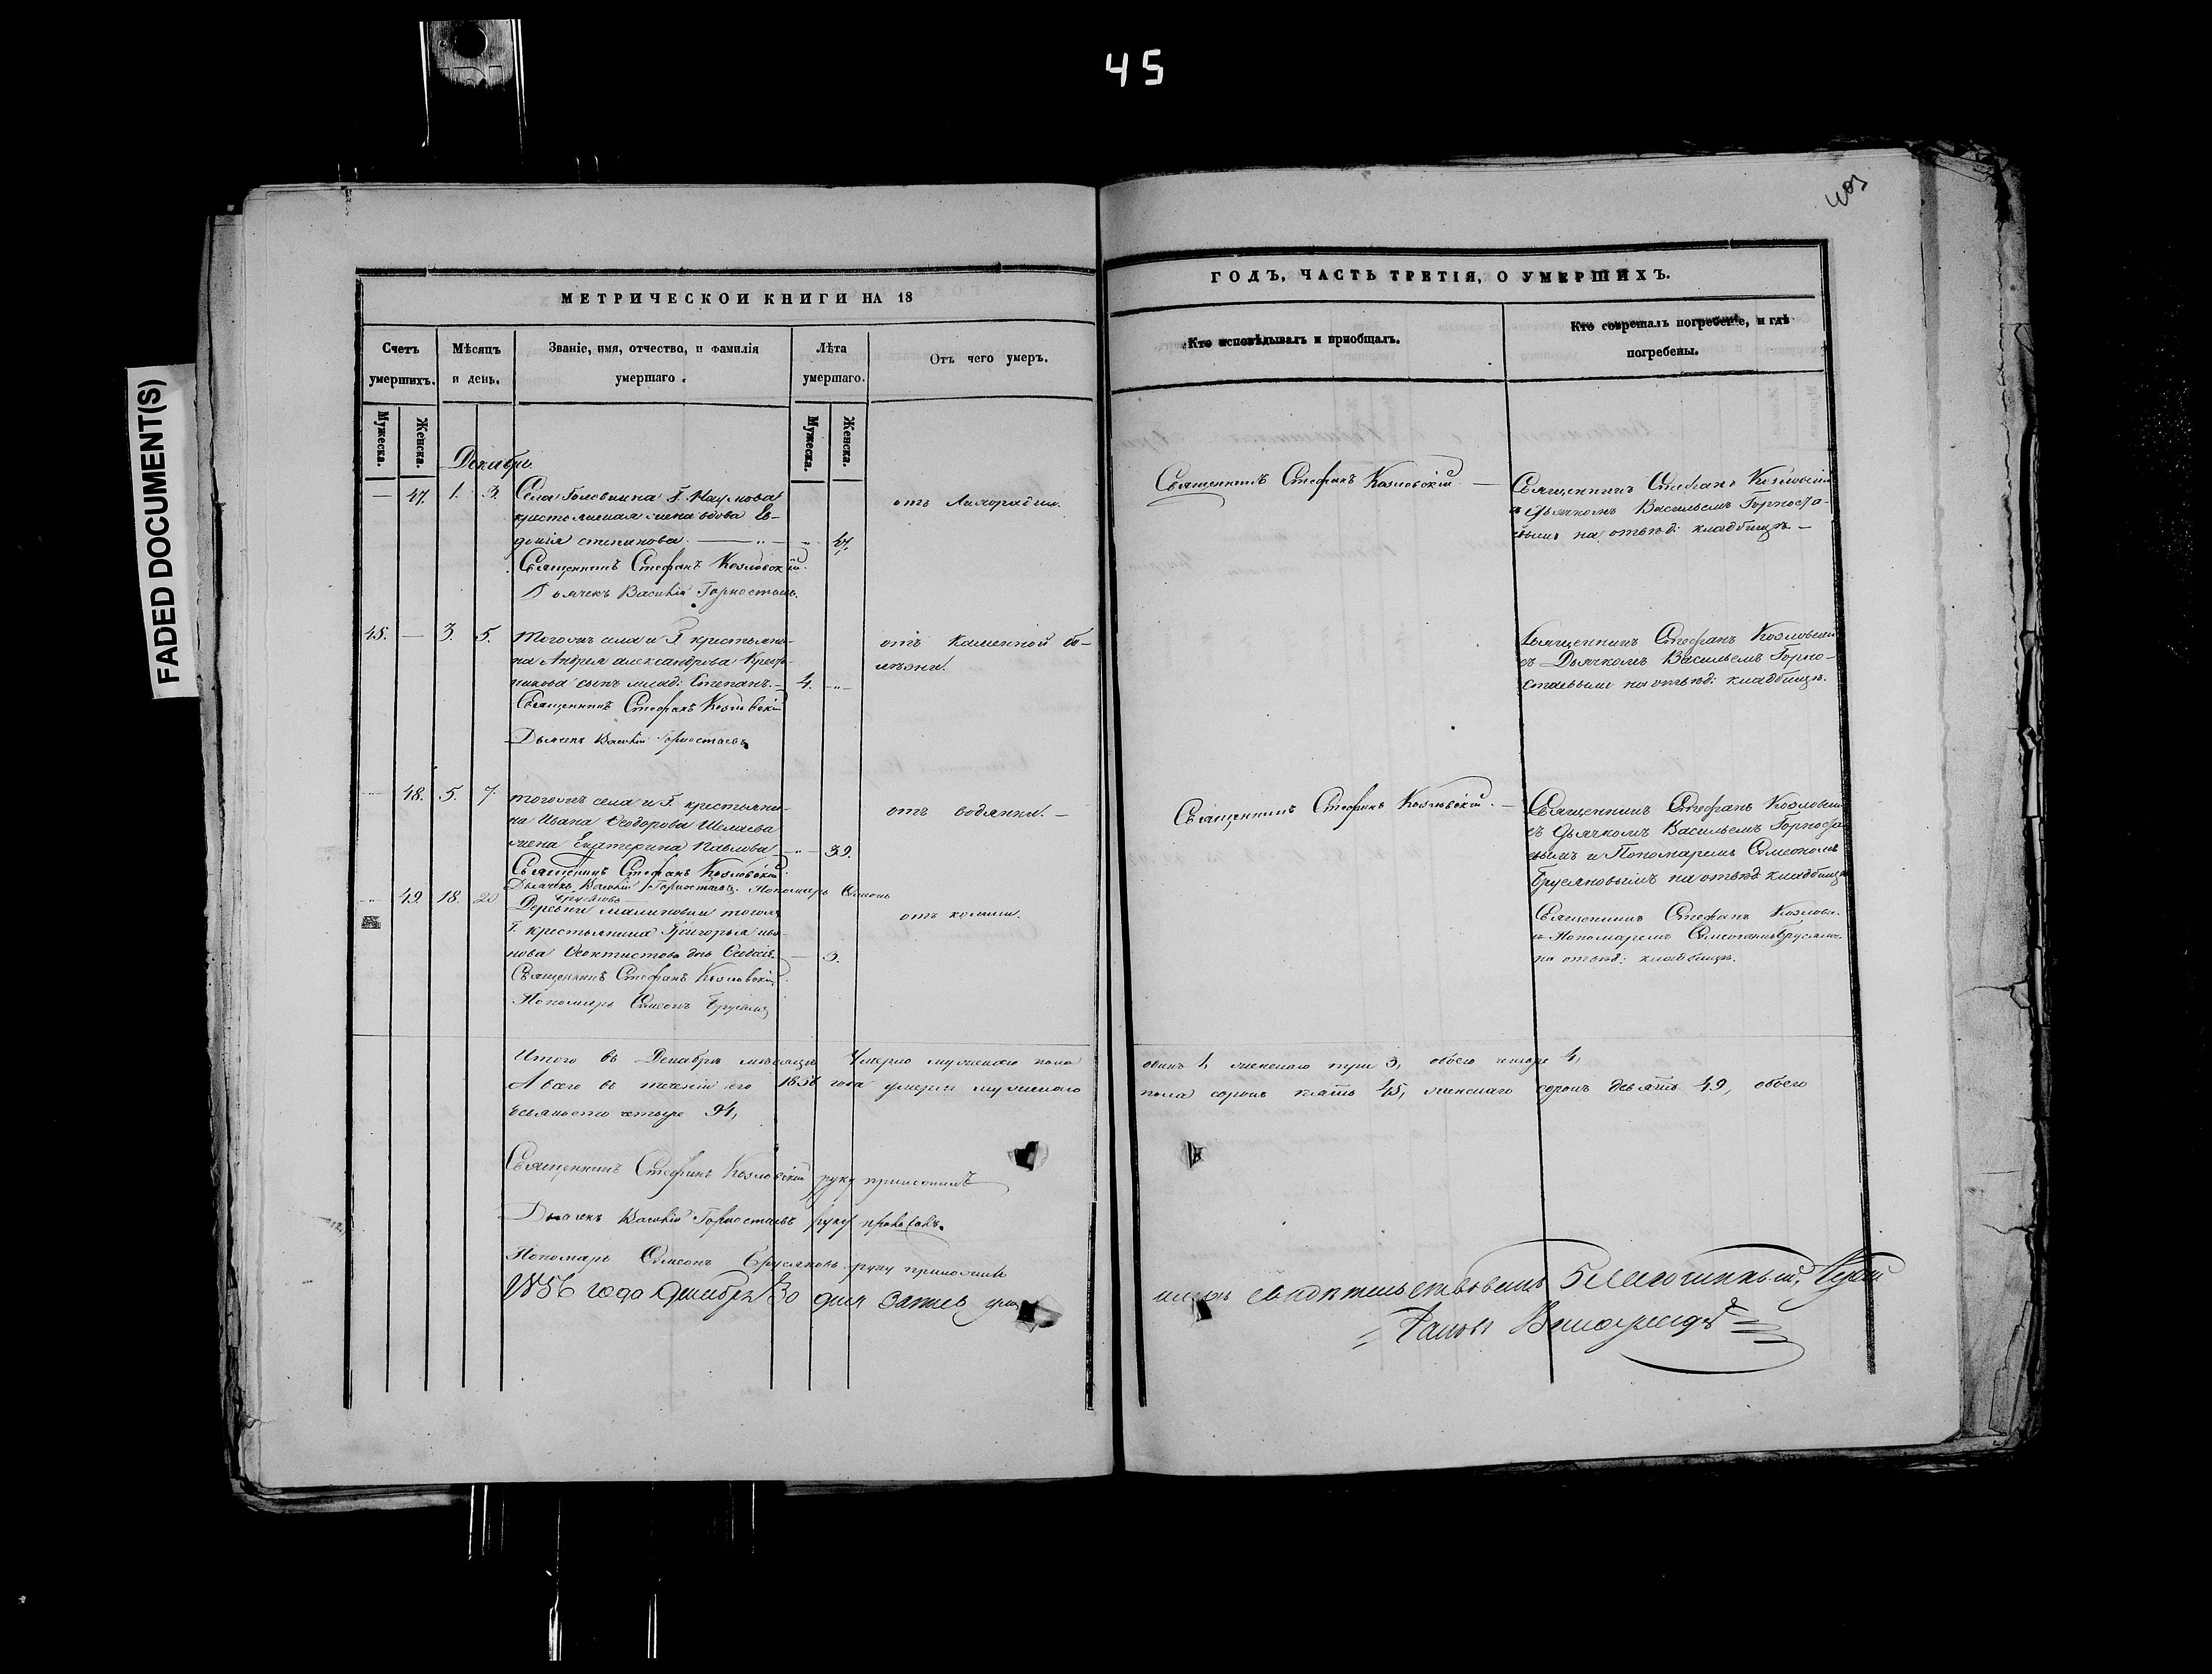 45
FADED DOCUMENT(S)
МЕТРИЧЕСКОЙ КНИГИ НА 18
ГОДЪ, ЧАСТЬ ТРЕТІЯ, О УМЕРШИХЪ.
Счетъ умершихъ.
Мѣсяцъ и день.
Званіе, имя, отчество, и фамилія умершаго.
Лѣта умершаго.
Отъ чего умеръ.
Кто исповѣдывалъ и пріобщалъ.
Кто совершалъ погребеніе, и гдѣ погребены.
Мужеска.
Женска.
Мужеска.
Женска.
Декабрь
— 47. 1. 3.
Села Головщина Г. Наумова
крестьянская жена вдова Ев-
докія степанова — „ — „ 47.
отъ Лихорадки.
Священникъ Стефанъ Козловскій
Дьячекъ Василій Горностаевъ.
Священникъ Стефанъ Козловскій —
Священникъ Стефанъ Козловскій
съ Дьячкомъ Васильемъ Горноста-
евымъ на отвѣд: кладбищѣ. —
45. — 3. 5.
тогожъ села и Г. крестьяни-
на Андрея александрова
сынъ млад: Степанъ. — 4. — „ —
отъ каменной бо-
лѣзни.
Священникъ Стефанъ Козловскій
Дьячекъ Василій Горностаевъ
Священникъ Стефанъ Козловскій
съ Дьячкомъ Васильемъ Горно-
стаевымъ на отвѣд: кладбищѣ.
48. 5. 7.
тогожъ села и Г. крестьяни-
на Ивана Ѳеодорова Шелаева
жена Екатерина Павлова — „ — 39.
отъ водянки. —
Священникъ Стефанъ Козловскій
Дьячекъ Василій Горностаевъ. Пономарь Симеонъ
Брусяновъ
Священникъ Стефанъ Козловскій. —
Священникъ Стефанъ Козловскій
съ Дьячкомъ Васильемъ Горноста
евымъ и Пономаремъ Симеономъ
Брусяновымъ на отвѣд: кладбищѣ
49. 18. 20
Деревни малиновки тогожъ
Г. крестьянина Григорья ива-
нова Ѳеоктистова дчь — 3.
Священникъ Стефанъ Козловскій
Пономарь Симеонъ Брусяновъ
Священникъ Стефанъ Козловскій
съ Пономаремъ Симеономъ
на отвѣд: кладбищѣ.
Итого въ Декабрѣ мѣсяцѣ Умерло мужескаго пола одинъ 1, женскаго три 3, обоего четыре 4,
А всего въ теченіи сего 1856 года умерло мужескаго пола сорокъ пять 45, женскаго сорокъ девять 49, обоего
девяносто четыре 94,
Священникъ Стефанъ Козловскій руку приложилъ
Дьячекъ Василій Горностаевъ руку приложилъ.
Пономарь Симеонъ Брусяновъ руку приложилъ
1856 года Декабря 30 дня свидѣтельствовалъ Благочинный,